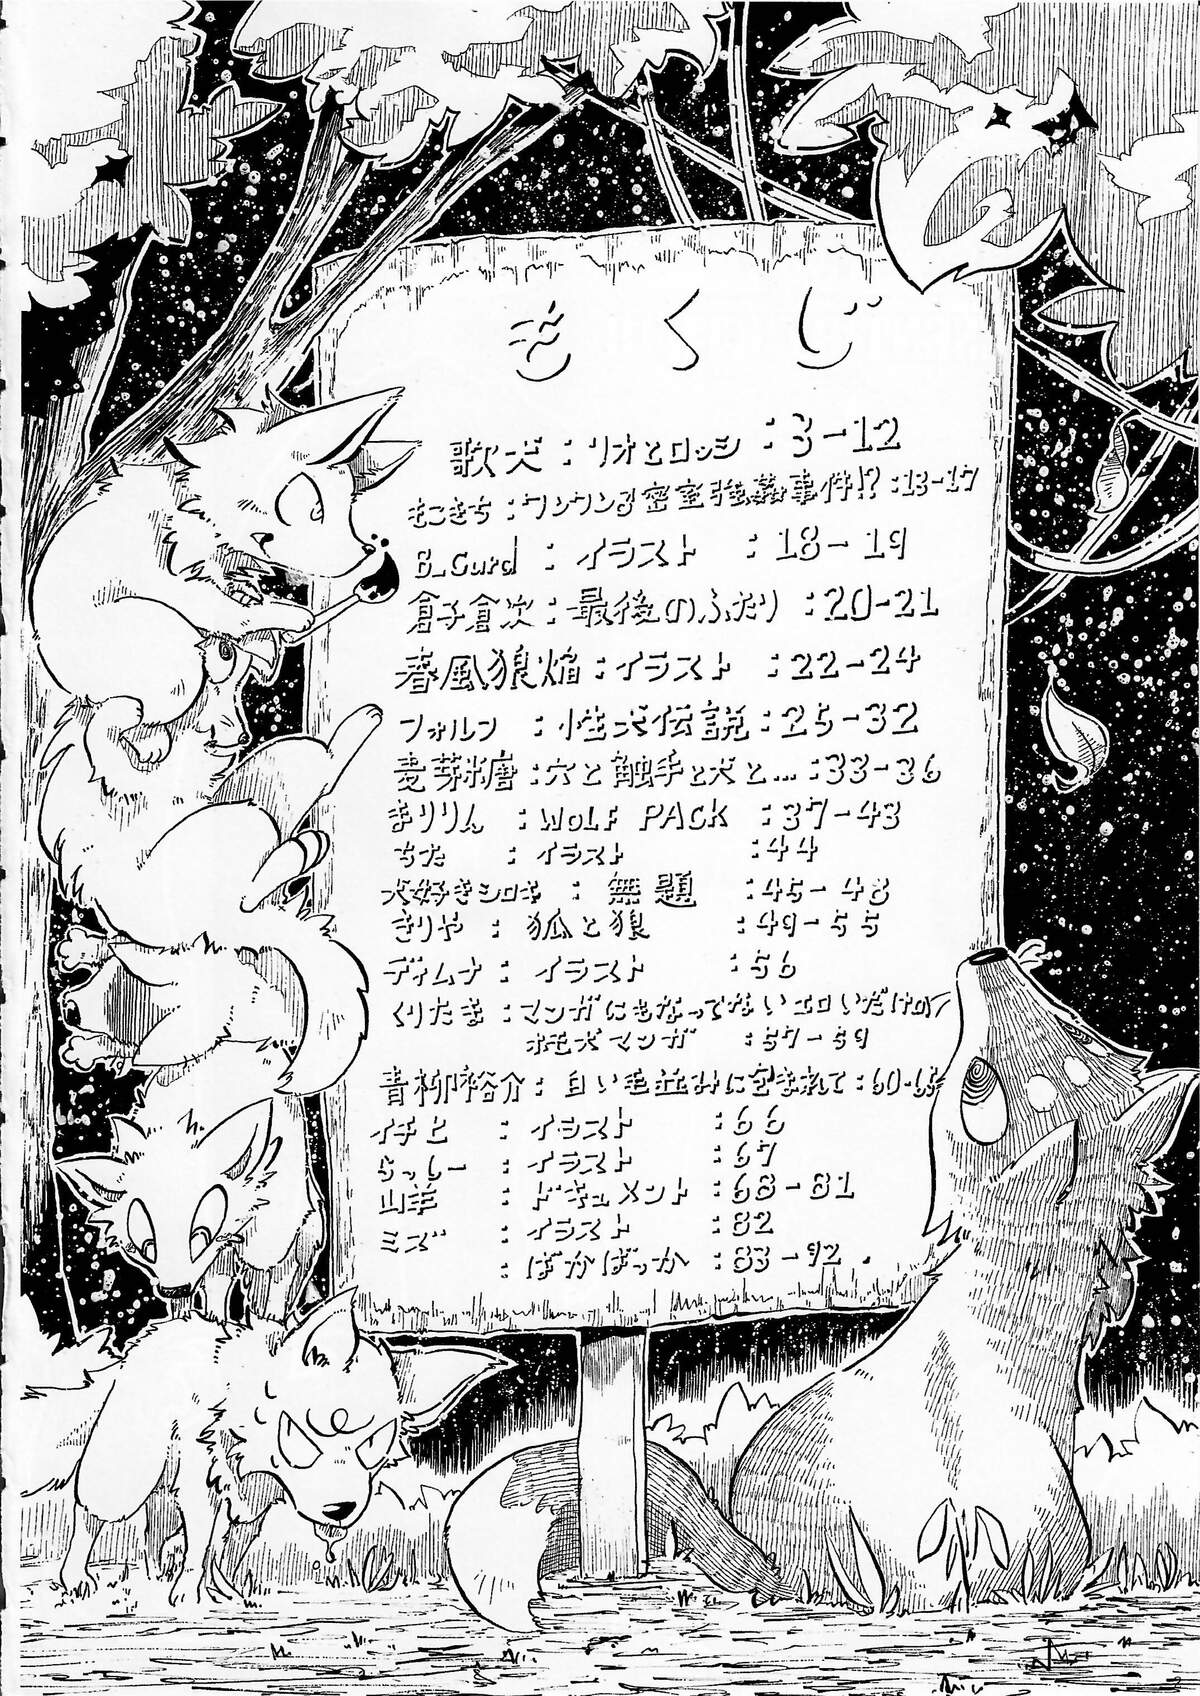 もくじ
歌犬：リオとロッシ：3-12
もこきち：ワンワンる密室強姦事件!?：13-17
B_Curd：イラスト：18-19
倉子倉次：最後のふたり：20-21
春風狼焔：イラスト：22-24
フォルフ：性犬伝説：25-32
麦芽糖：穴と触手と犬と…：33-36
まりりん：WOLF PACK：37-43
ちた：イラスト：44
犬好きシロキ：無題：45-48
きりや：狐と狼：49-55
ディムナ：イラスト：56
くりたま：マンガにもなってないエロいだけの
ホモ犬マンガ：57-59
青柳裕介：白い毛並みに包まれて：60-65
イチヒ：イラスト：66
らっしー：イラスト：67
山羊：ドキュメント：68-81
ミズ：イラスト：82
：ばかばっか：83-92